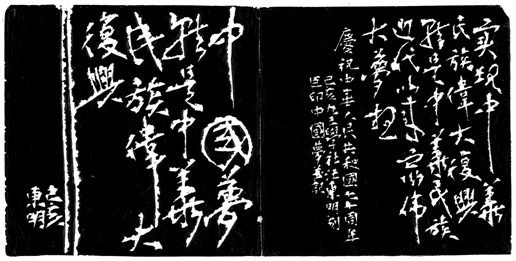 實現中華
民族偉大復興
就是中華民族
近代以來最偉
大夢想
慶祝中華人民共和國七十周年
己亥 東明刻
巨印中國夢並記
中國夢
就是中華
民族偉大
復興
己亥
東明